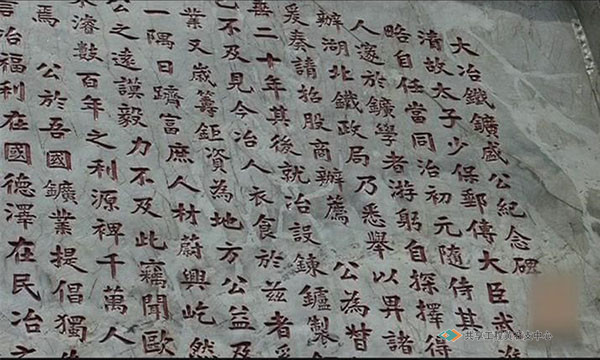 大冶鐵鑛盛公紀念碑
清故太子少保郵傳大臣武
略自任當同治初元隨侍其
人邃於鑛學者游躬自探擇得
辦湖北鐵政局乃悉舉以畀諸
爰奏請招股商辦薦 公為督
二十年其後就冶設鍊鑪製
不及見今冶人衣食於茲者
業又歲籌鉅資為地方公益及
一隅日躋富庶人材蔚興屹然
公之遠謨毅力不及此竊聞歐
濬數百年之利源裨千萬人
焉 公於吾國鑛業提倡獨
治福利在國德澤在民冶
共享工程
中心